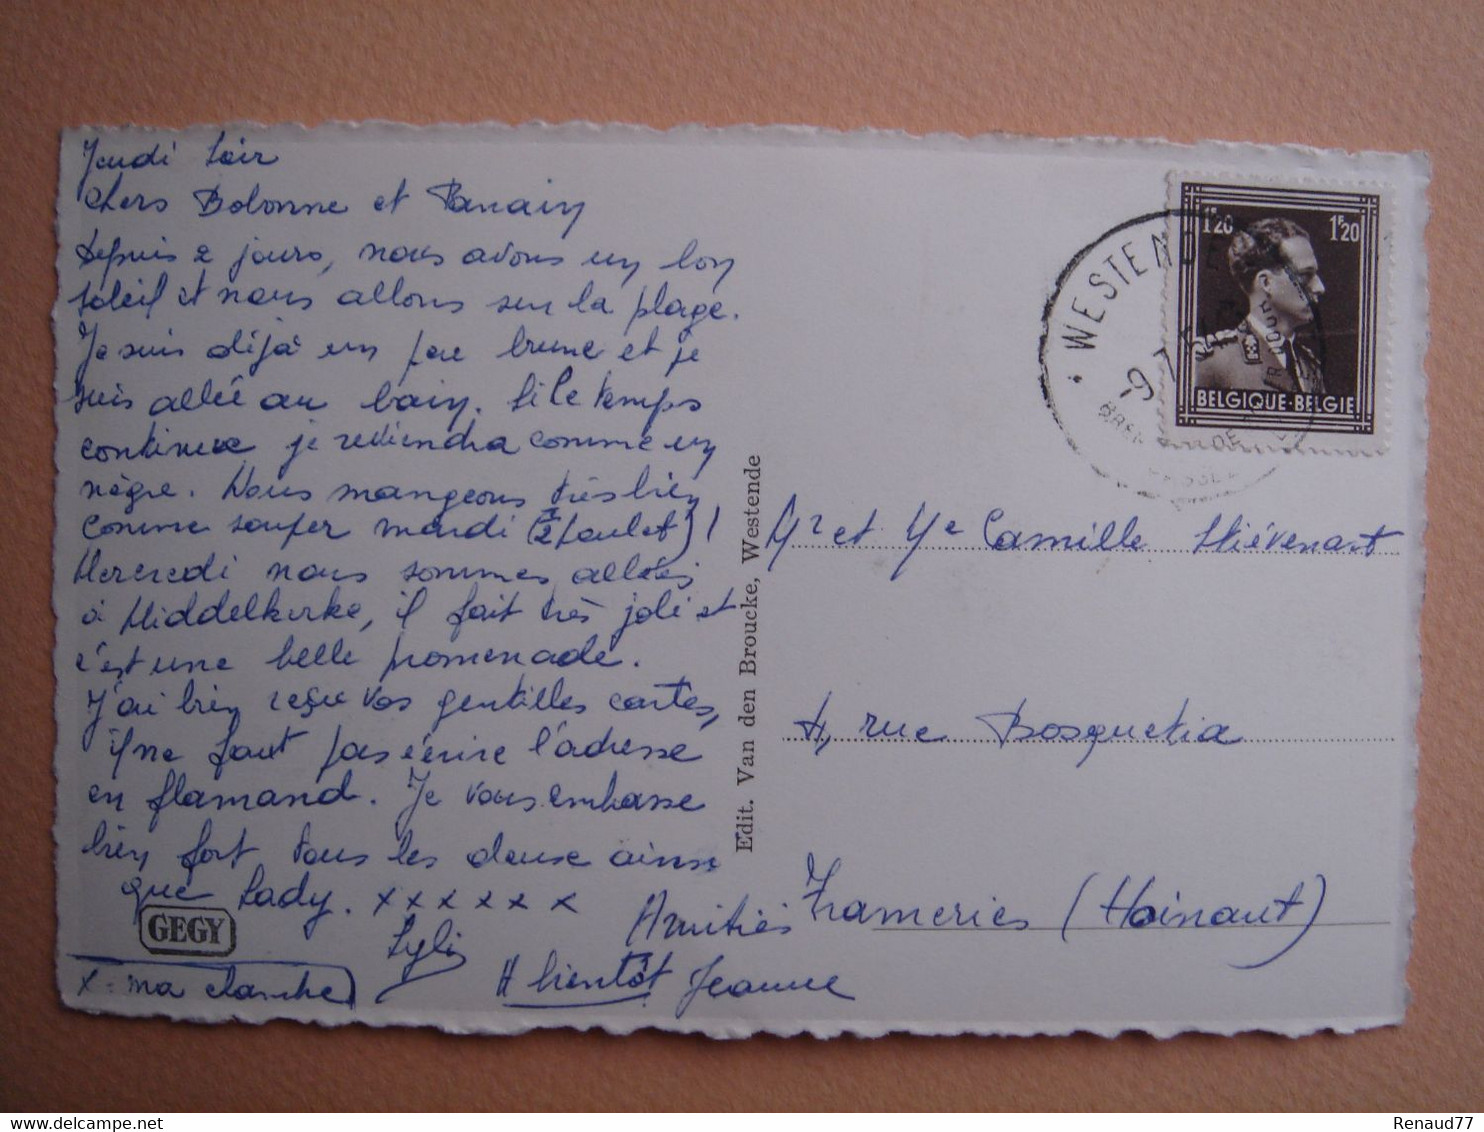 Jeudi soir
Chers Bobonne et Panain
depuis 2 jours, nous avons un bon
soleil et nous allons sur la plage.
Je suis déjà un peu brune et je
suis allée au bain. Si le temps
continue je reviendra comme un
nègre. Nous mangeons très bien
comme souper mardi (1/2 poulet) !
Mercredi nous sommes allées
à Middelkerke, il fait très joli et
c'est une belle promenade.
J'ai bien reçue vos gentilles cartes,
il ne faut pas écrire l'adresse
en flamand. Je vous embrasse
bien fort tous les deux ainsi
que Lady. x x x x x x
Lyli
GEGY
x = ma chambre
Amitiés
A bientôt Jeanne
Edit. Van den Broucke, Westende
WESTENDE
-9
1F20 1F20
BELGIQUE·BELGIE
Mr et Me Camille Thiévenart
4, rue Bosquetia
Frameries (Hainaut)
Renaud77